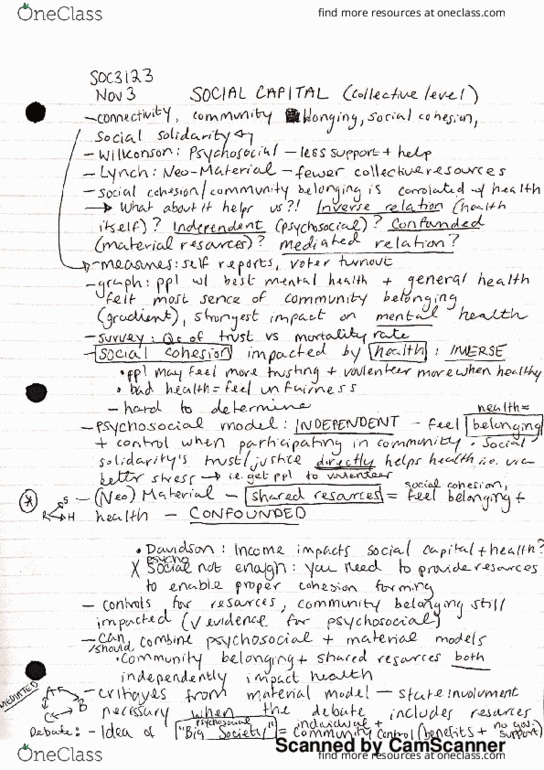 OneClass
find more resources at oneclass.com
SOC3123
Nov 3 SOCIAL CAPITAL (collective level)
- connectivity, community blonging, social cohesion,
social solidarity
- Wilkonson: Psychosocial - less support + help
- Lynch: Neo-Material - fewer collective resources
- social cohesion/community belonging is corrolated w/ health
→ What about it helps us?! Inverse relation (health
itself)? Independent (psychosocial)? Confounded
(material resources)? mediated relation?
- measures: self reports, voter turnout
- graph: ppl w/ best mental health + general health
felt most sence of community belonging
(gradient), strongest impact on mental health
- survey: Qs of trust vs mortality rate
- social cohesion impacted by health: INVERSE
• ppl may feel more trusting + valenteer more when healthy
• bad health = feel unfairness
- hard to determine
health =
- psychosocial model: INDEPENDENT - feel belonging
+ control when participating in community • Social
solidarity's trust/justice directly helps health i.e. via
better stress → i.e. get ppl to valenteer
social cohesion,
- (Neo) Material - shared resources = feel belonging +
S
R H
health - CONFOUNDED
• Davidson: Income impacts social capital + health?
psycho
X Social not enough: you need to provide resources
to enable proper cohesion forming
- controls for resources, community belonging still
impacted (√ evidence for psychosocial)
- can/should combine psychosocial + material models
• Community belonging + shared resources both
independently impact health
MEDIATED
A
B
C
- critiques from material model - state involvment
necessary when the debate includes resources
psychosocial
Debate: - Idea of "Big Society" = individual + community control (benefits + no gov. support)
Scanned by CamScanner
OneClass
find more resources at oneclass.com